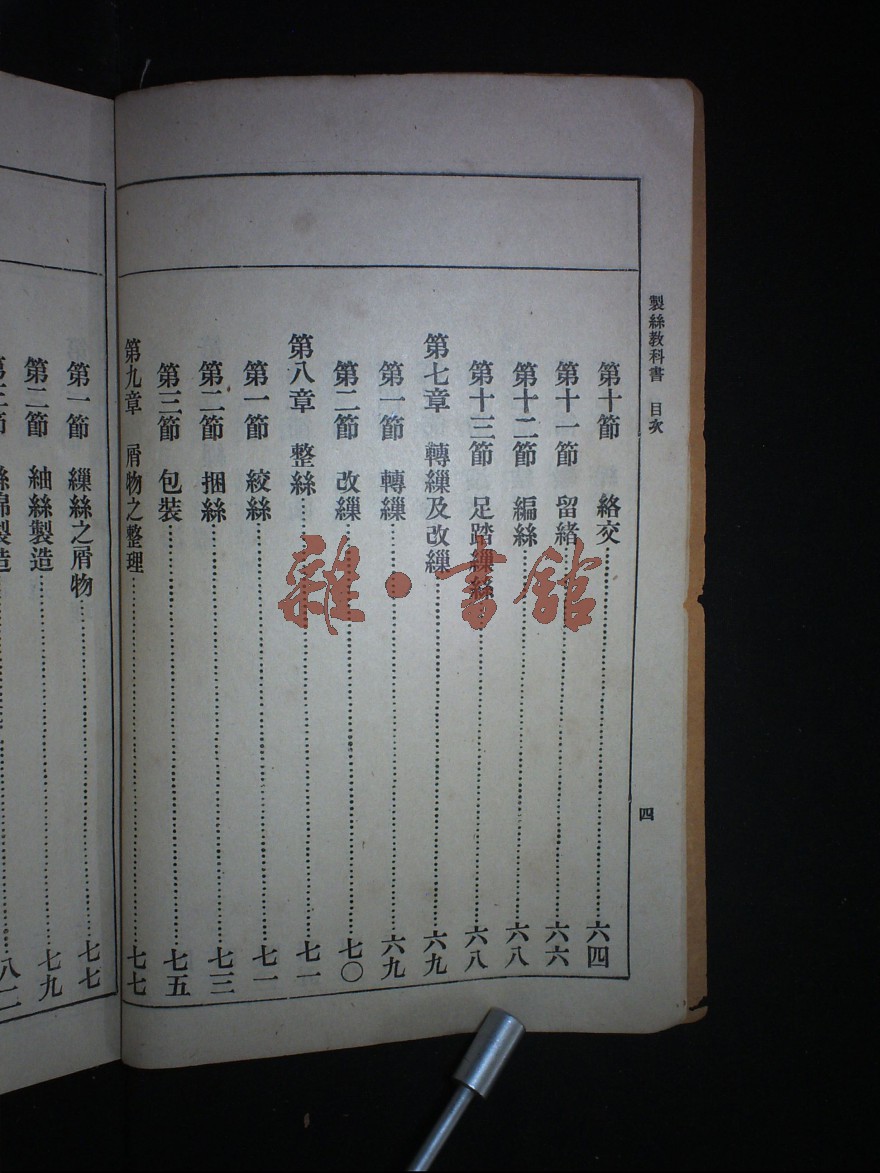 製絲教科書　目次
四
第十節　絡交……六四
第十一節　留緒……六六
第十二節　編絲……六八
第十三節　足踏繅絲……六八
第七章　轉繅及改繅……六九
第一節　轉繅……六九
第二節　改繅……七〇
第八章　整絲……七一
第一節　絞絲……七一
第二節　捆絲……七三
第三節　包裝……七五
第九章　屑物之整理……七七
第一節　繅絲之屑物……七七
第二節　紬絲製造……七九
絲綿製造……八二
雜·書館